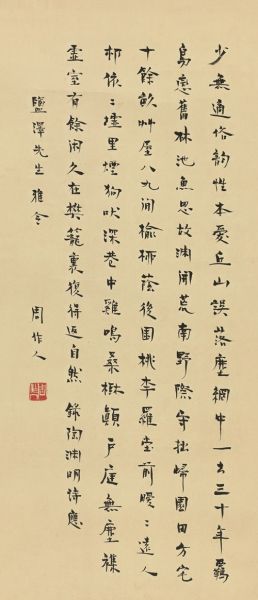 少無適俗韻性本愛丘山誤落塵網中一去三十年羈
鳥戀舊林池魚思故淵開荒南野際守拙歸園田方宅
十餘畝艸屋八九間榆柳蔭後園桃李羅堂前曖〻遠人
邨依〻墟里煙狗吠深巷中雞鳴桑樹顛戶庭無塵襍
虛室有餘閑久在樊籠裏復得返自然 錄陶淵明詩應
鹽澤先生雅令
周作人